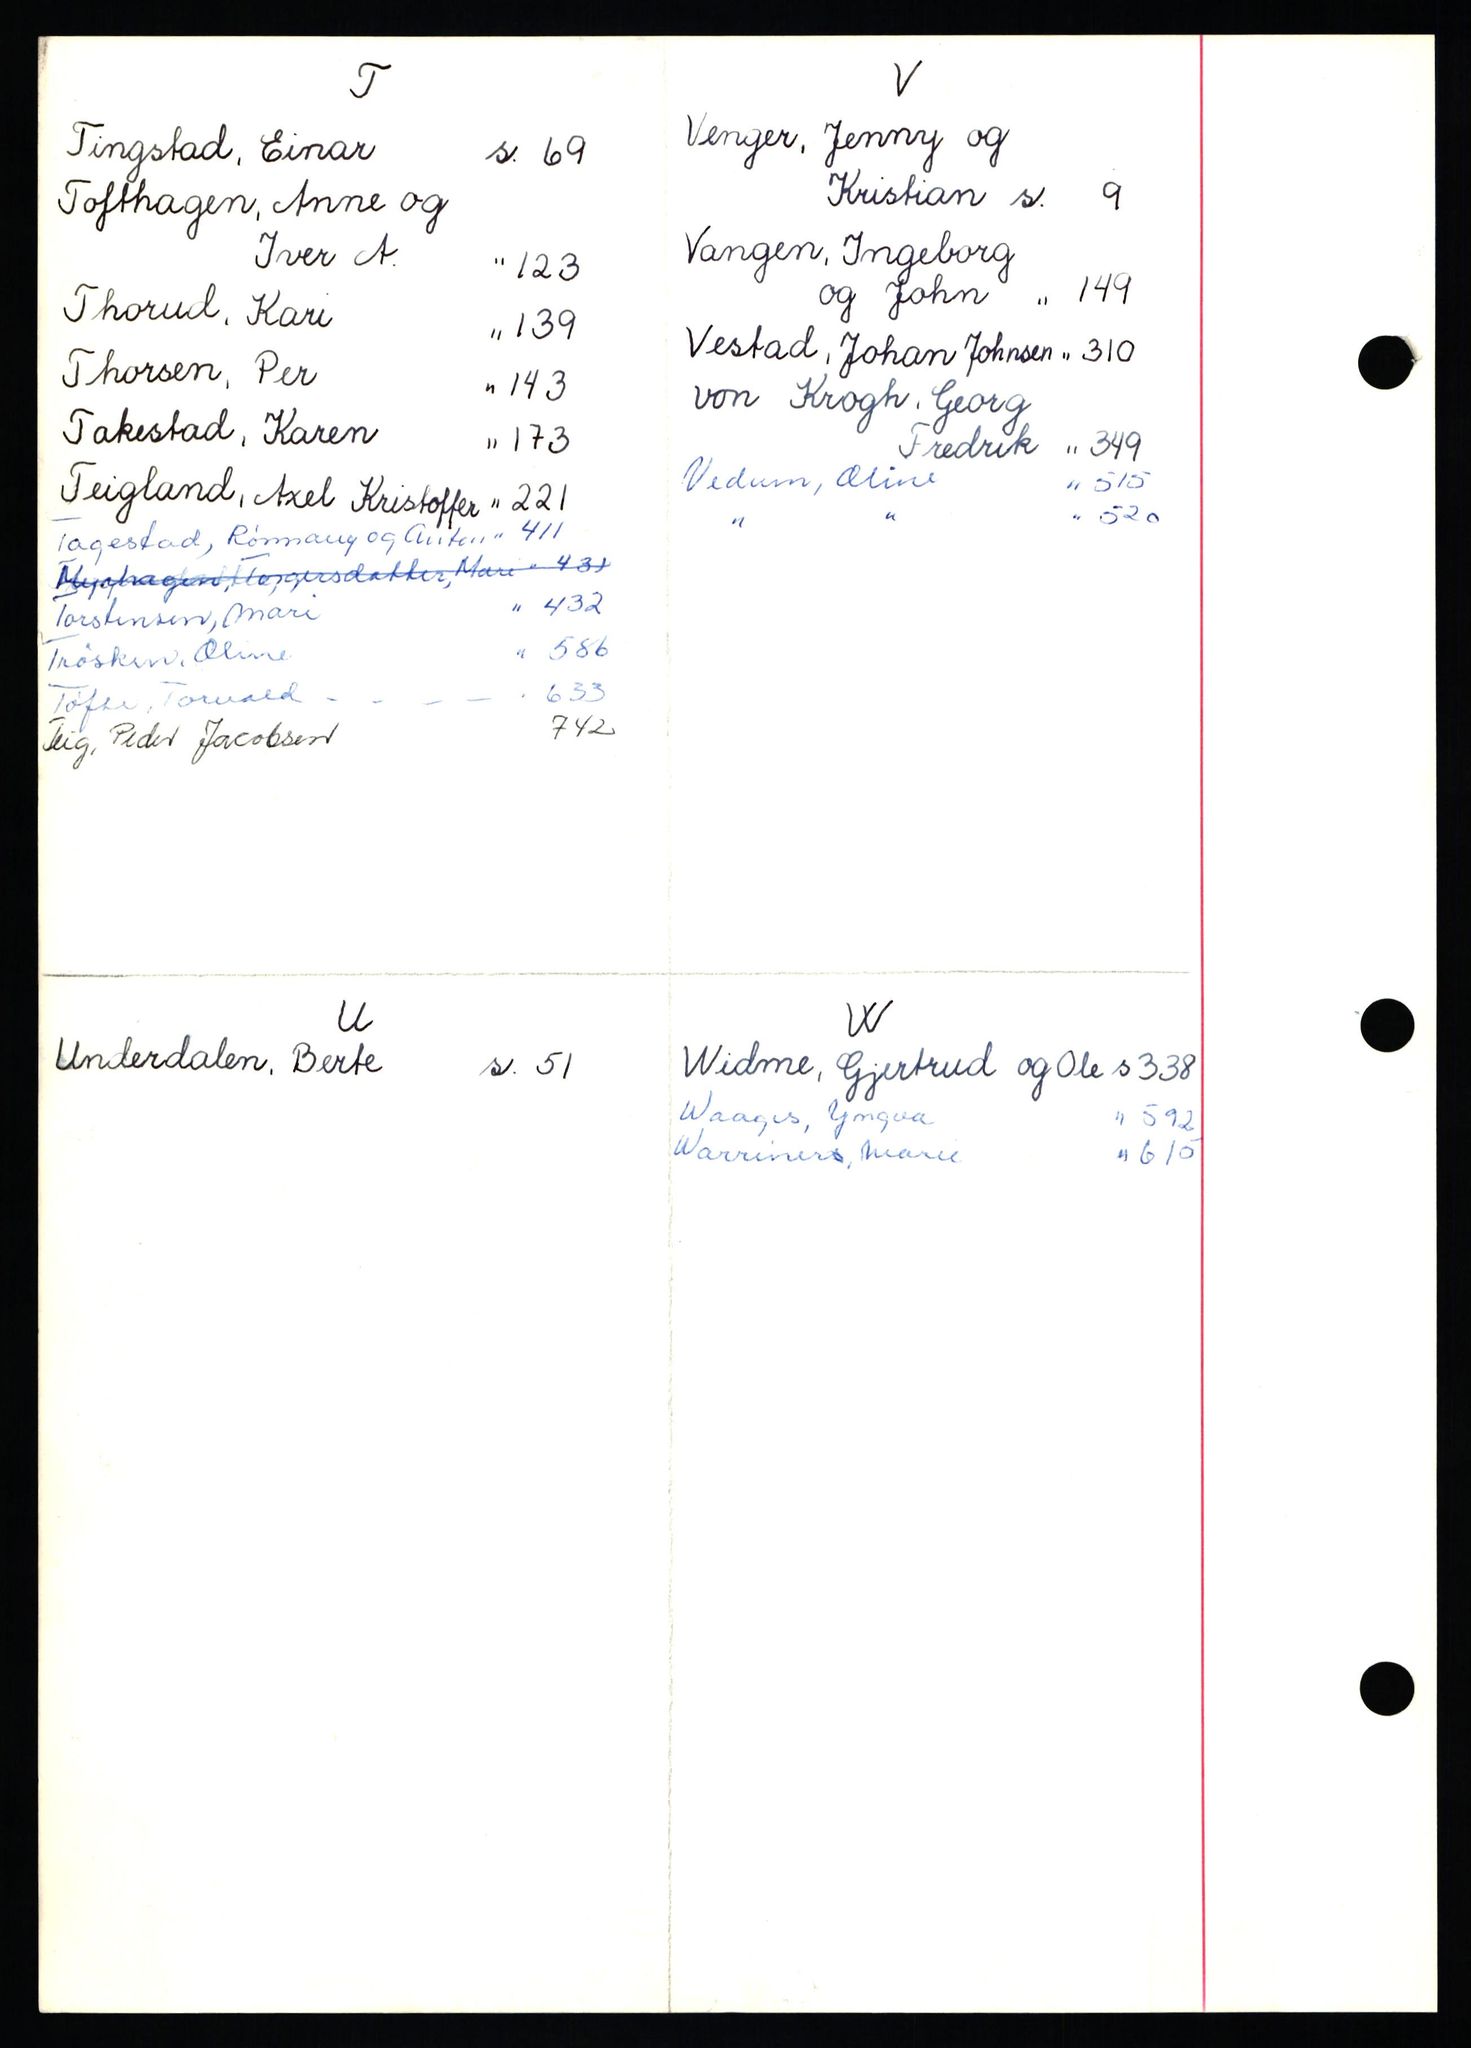 T
Tingstad, Einar s. 69
Tofthagen, Anne og
Iver A. " 123
Thorud, Kari " 139
Thorsen, Per " 143
Takestad, Karen " 173
Teigland, Axel Kristoffer " 221
Tagestad, Rønnaug og Anton " 411
Mari " 431
Torstensen, Mari " 432
Tråsken, Oline " 586
Tofte, Torvald - - - - " 633
Teig, Peder Jacobsen 742
V
Venger, Jenny og
Kristian s. 9
Vangen, Ingeborg
og John " 149
Vestad, Johan Johnsen " 310
von Krogh, Georg
Fredrik " 349
Vedum, Oline " 515
" " " 520
U
Underdalen, Berte s. 51
W
Widme, Gjertrud og Ole s 338
Waages, Yngva " 592
Warriners, Marie " 615